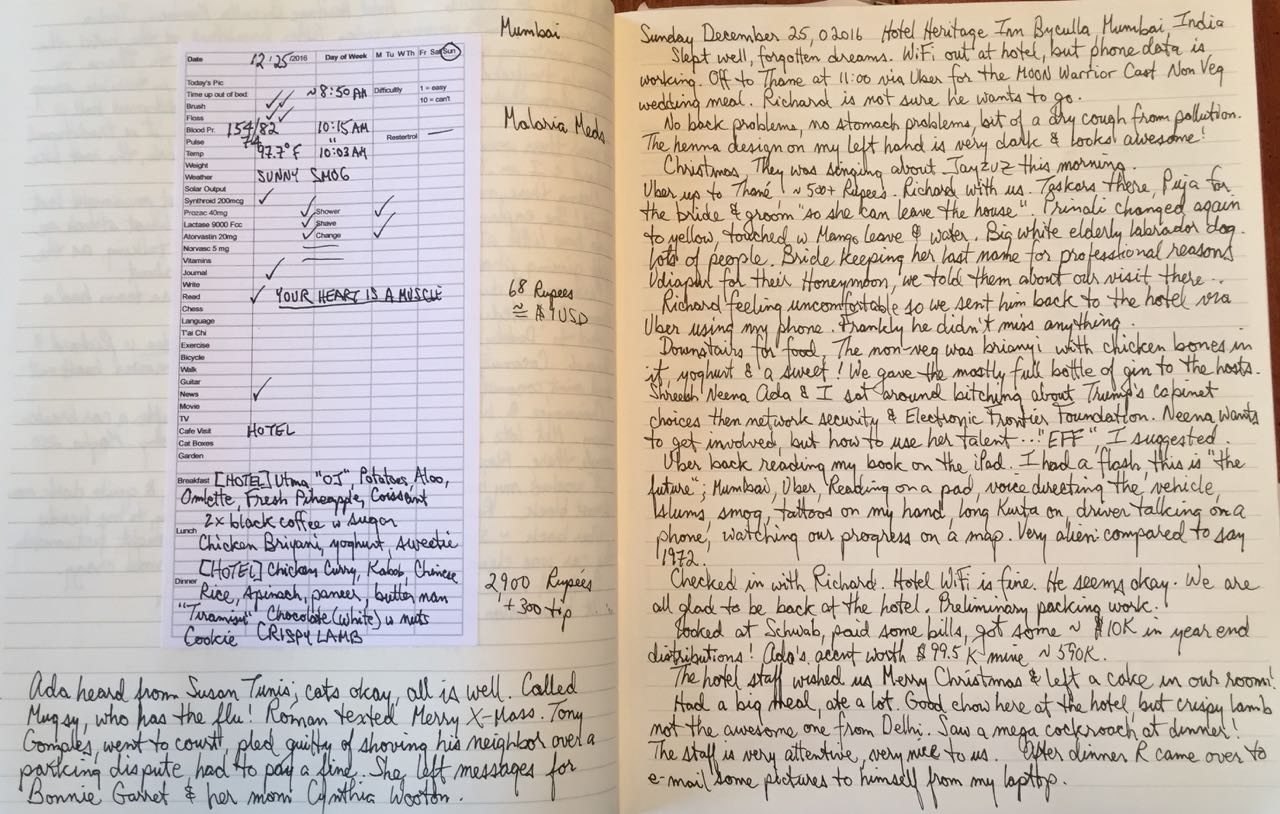 Mumbai
Malaria Meds
68 Rupees
≅ $1 USD
2,900 Rupees
+ 300 tip
Date 12/25/2016 Day of Week M Tu W Th Fr Sat Sun
Today's Pic
Time up out of bed: ~8:50 AM Difficulty 1 = easy
Brush ✓✓ 10 = can't
Floss ✓✓
Blood Pr. 154/82 10:15 AM Restertrol —
Pulse 74 "
Temp 97.7°F 10:03 AM
Weight
Weather SUNNY SMOG
Solar Output
Synthroid 200mcg ✓
Prozac 40mg ✓ Shower ✓
Lactase 9000 Fcc ✓ Shave ✓
Atorvastin 20mg ✓ Change ✓
Norvasc 5 mg —
Vitamins —
Journal ✓
Write
Read ✓ YOUR HEART IS A MUSCLE
Chess
Language
T'ai Chi
Exercise
Bicycle
Walk
Guitar
News ✓
Movie
TV
Cafe Visit HOTEL
Cat Boxes
Garden
Breakfast [HOTEL] Utma, "OJ", Potatoes Aloo,
Omlette, Fresh Pineapple, Coissant
2x black coffee w sugar
Lunch
Chicken Briyani, yoghurt, sweetie
[HOTEL] Chicken Curry, Kabob, Chinese
Dinner Rice, Spinach, paneer, butter nan
"Tiramisu" Chocolate (white) w nuts
Cookie CRISPY LAMB
Ada heard from Susan Tunis; cats okay, all is well. Called
Mugsy, who has the flu! Roman texted Merry X-Mass. Tony
Comples, went to court, pled guilty of shoving his neighbor over a
parking dispute, had to pay a fine. She left messages for
Bonnie Garret & her mom Cynthia Wooton.
Sunday December 25, 02016 Hotel Heritage Inn Byculla Mumbai, India
Slept well, forgotten dreams. WiFi out at hotel, but phone data is
working. Off to Thane at 11:00 via Uber for the MOON Warrior Cast Non Veg
wedding meal. Richard is not sure he wants to go.
No back problems, no stomach problems, bit of a dry cough from pollution.
The henna design on my left hand is very dark & looks awesome!
Christmas, They was singing about Jayzuz this morning.
Uber up to Thané! ~500+ Rupees. Richard with us. Taskars there, Puja for
the bride & groom "so she can leave the house". Prinali changed again
to yellow, touched w Mango leave & water. Big white elderly labrador dog.
Lots of people. Bride keeping her last name for professional reasons
Udiapur for their Honeymoon, we told them about our visit there.
Richard feeling uncomfortable so we sent him back to the hotel via
Uber using my phone. Frankly he didn't miss anything.
Downstairs for food. The non-veg was brianyi with chicken bones in
it, yoghurt & a sweet! We gave the mostly full bottle of gin to the hosts.
Shreesh Neena Ada & I sat around bitching about Trump's cabinet
choices then network security & Electronic Frontier Foundation. Neena wants
to get involved, but how to use her talent... "EFF", I suggested.
Uber back reading my book on the iPad. I had a flash, this is "the
future"; Mumbai, Uber, Reading on a pad, voice directing the vehicle,
slums, smog, tattoos on my hand, long Kurta on, driver talking on a
phone, watching our progress on a map. Very alien compared to say
1972.
Checked in with Richard. Hotel WiFi is fine. He seems okay. We are
all glad to be back at the hotel. Preliminary packing work.
Looked at Schwab, paid some bills, got some ~ $10K in year end
distributions! Ada's accnt worth $99.5K mine ~ 590K.
The hotel staff wished us Merry Christmas & left a cake in our room!
Had a big meal, ate a lot. Good chow here at the hotel, but crispy lamb
not the awesome one from Delhi. Saw a mega cockroach at dinner!
The staff is very attentive, very nice to us. After dinner R came over to
e-mail some pictures to himself from my laptop.